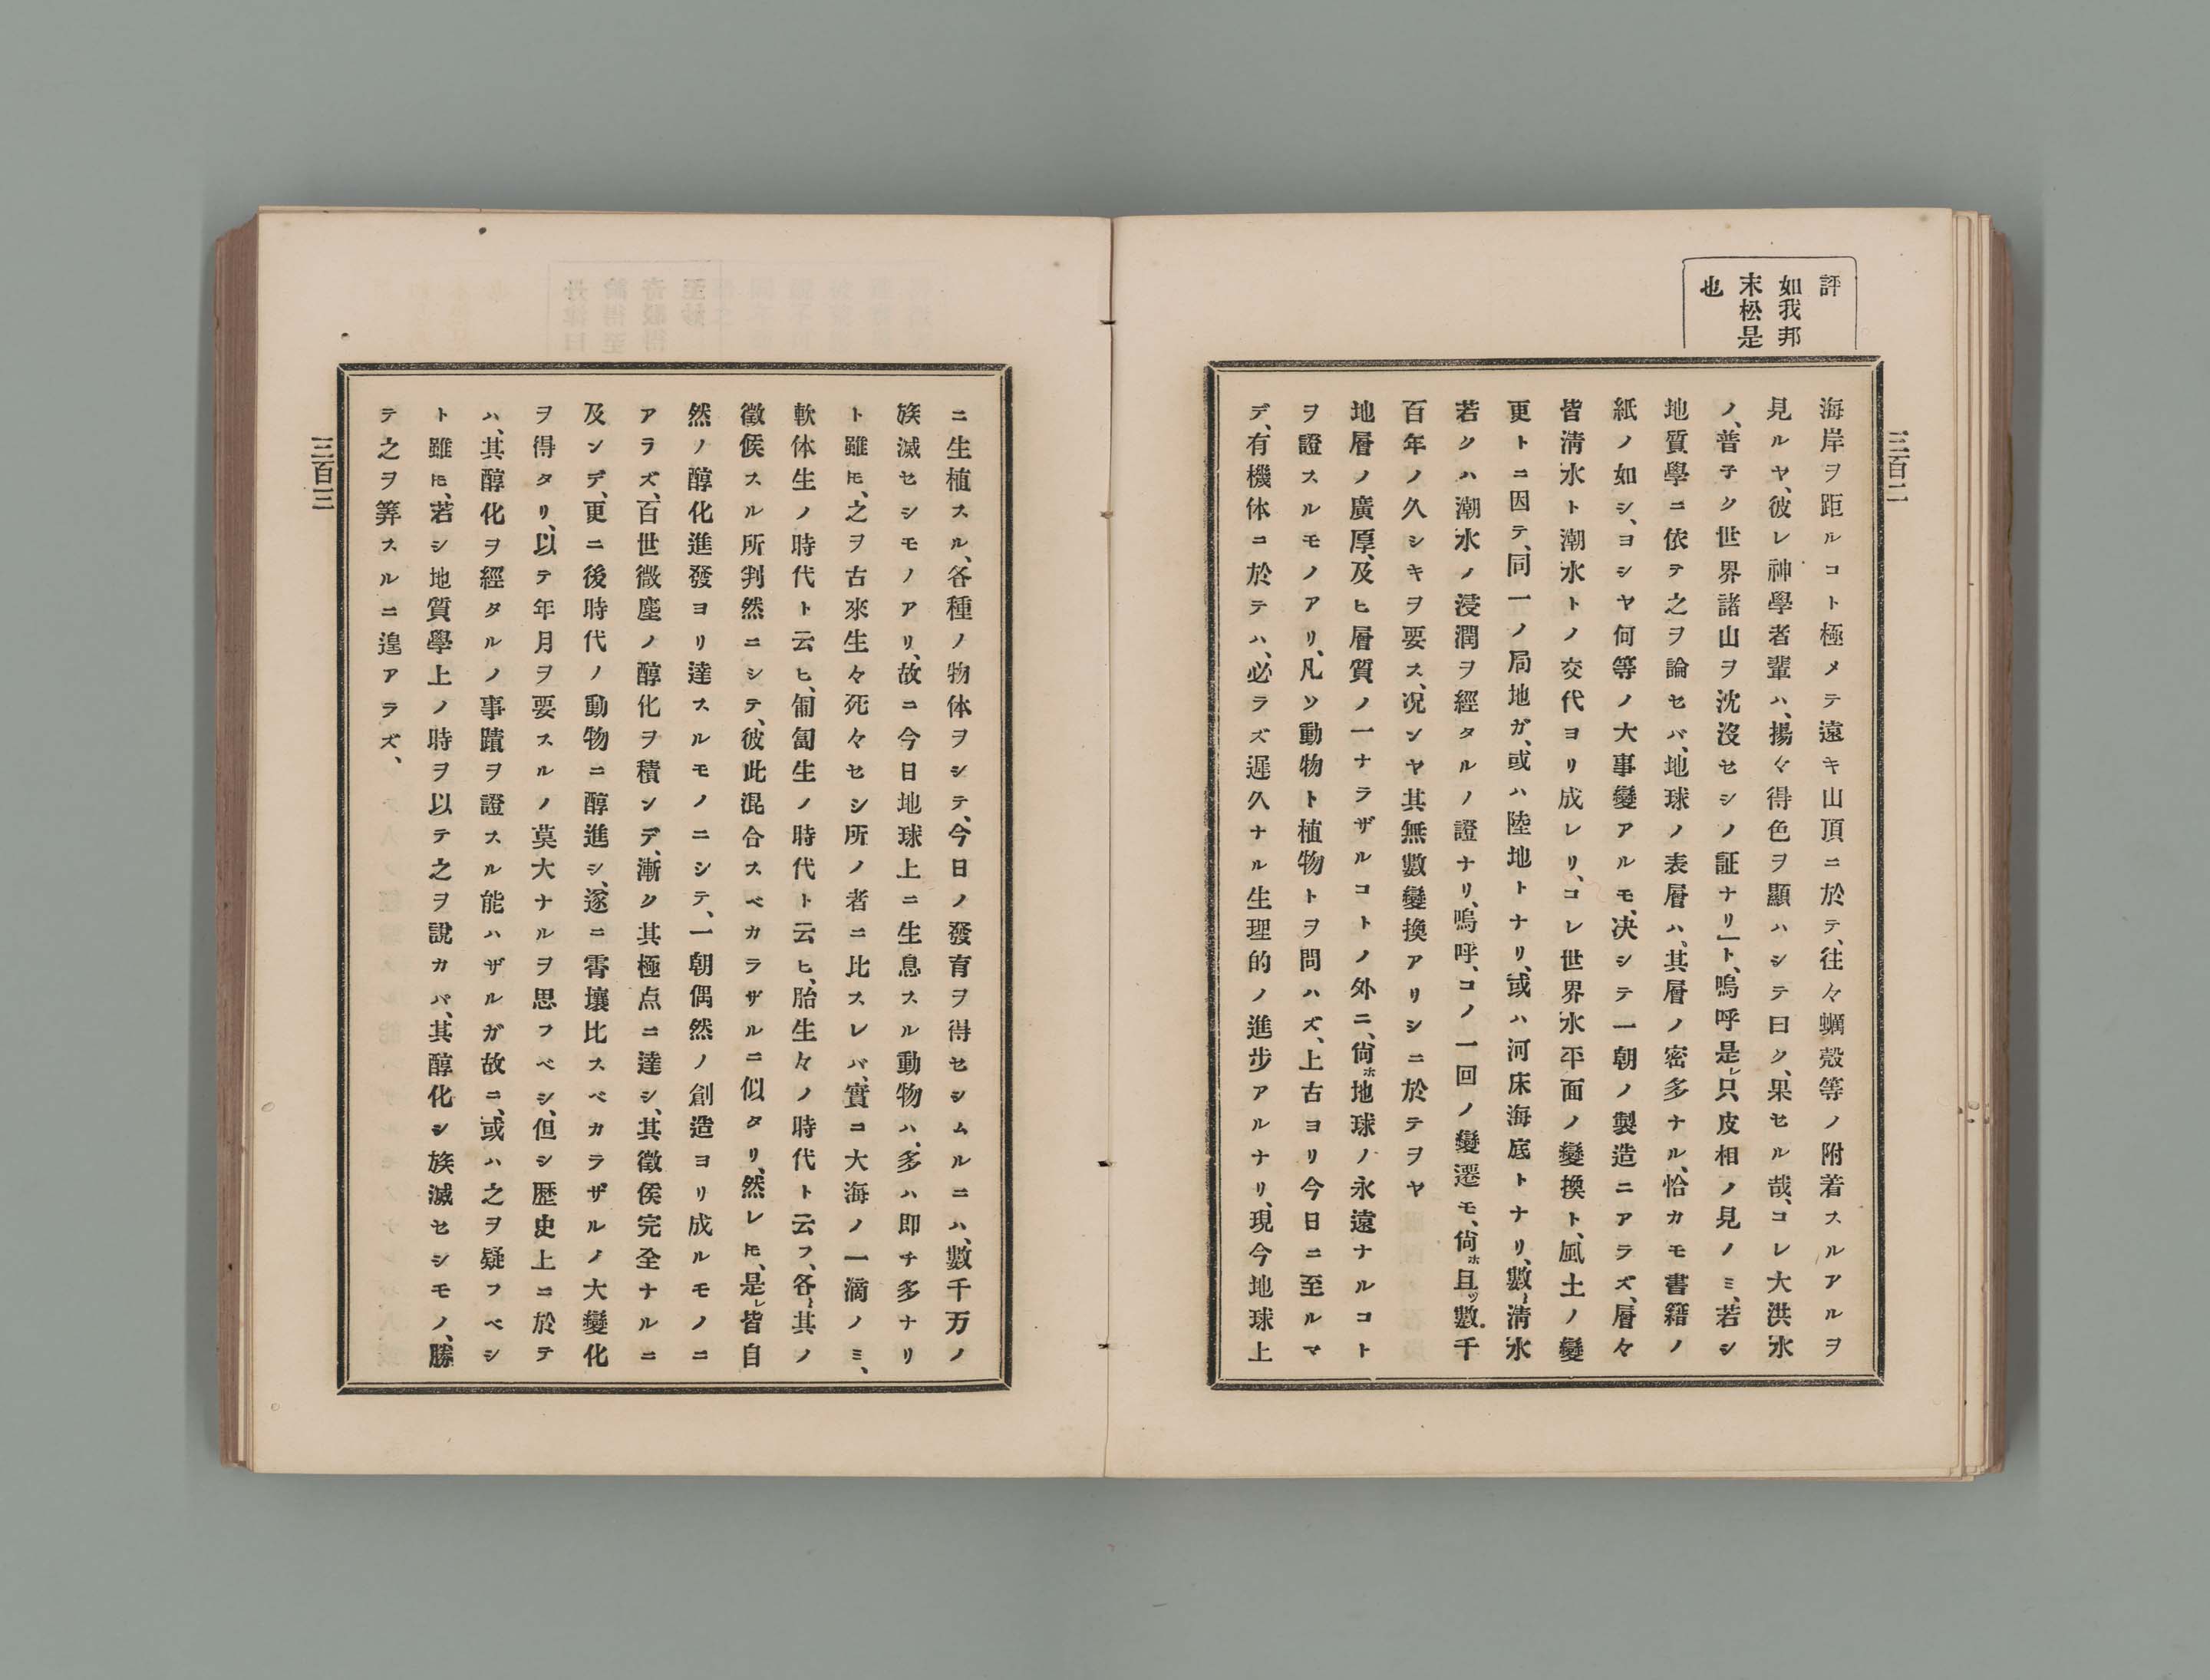 三百二
評
如我邦
末松是
也
海岸ヲ距ルコト極メテ遠キ山頂ニ於テ、往々蠣殼等ノ附着スルアルヲ
見ルヤ、彼レ神學者輩ハ、揚々得色ヲ顯ハシテ曰ク、果セル哉、コレ大洪水
ノ、普子ク世界諸山ヲ沈沒セシノ証ナリ」ト、嗚呼是レ只皮相ノ見ノミ、若シ
地質學ニ依テ之ヲ論セバ、地球ノ表層ハ、其層ノ密多ナル、恰カモ書籍ノ
紙ノ如シ、ヨシヤ何等ノ大事變アルモ、决シテ一朝ノ製造ニアラズ、層々
皆淸水ト潮水トノ交代ヨリ成レリ、コレ世界水平面ノ變換ト、風土ノ變
更トニ因テ、同一ノ局地ガ、或ハ陸地トナリ、或ハ河床海底トナリ、數〻淸水
若クハ潮水ノ浸潤ヲ經タルノ證ナリ、嗚呼、コノ一回ノ變遷モ、尙ホ且ツ數千
百年ノ久シキヲ要ス、况ンヤ其無數變換アリシニ於テヲヤ
地層ノ廣厚、及ヒ層質ノ一ナラザルコトノ外ニ、尙ホ地球ノ永遠ナルコト
ヲ證スルモノアリ、凡ソ動物ト植物トヲ問ハズ、上古ヨリ今日ニ至ルマ
デ、有機体ニ於テハ、必ラズ遲久ナル生理的ノ進步アルナリ、現今地球上
ニ生植スル、各種ノ物体ヲシテ、今日ノ發育ヲ得セシムルニハ、數千万ノ
族滅セシモノアリ、故ニ今日地球上ニ生息スル動物ハ、多ハ即チ多ナリ
ト雖𪜈、之ヲ古來生々死々セシ所ノ者ニ比スレバ、實ニ大海ノ一滴ノミ、
軟体生ノ時代ト云ヒ、匍匐生ノ時代ト云ヒ、胎生々ノ時代ト云フ、各〻其ノ
徵候スル所判然ニシテ、彼此混合スベカラザルニ似タリ、然レ𪜈、是レ皆自
然ノ醇化進發ヨリ達スルモノニシテ、一朝偶然ノ創造ヨリ成ルモノニ
アラズ、百世微塵ノ醇化ヲ積ンデ、漸ク其極点ニ達シ、其徵候完全ナルニ
及ンデ、更ニ後時代ノ動物ニ醇進シ、遂ニ霄壤比スベカラザルノ大變化
ヲ得タリ、以テ年月ヲ要スルノ莫大ナルヲ思フベシ、但シ歷史上ニ於テ
ハ、其醇化ヲ經タルノ事蹟ヲ證スル能ハザルガ故ニ、或ハ之ヲ疑フベシ
ト雖𪜈、若シ地質學上ノ時ヲ以テ之ヲ說カバ、其醇化シ族滅セシモノ、勝
テ之ヲ筭スルニ遑アラズ、
三百三